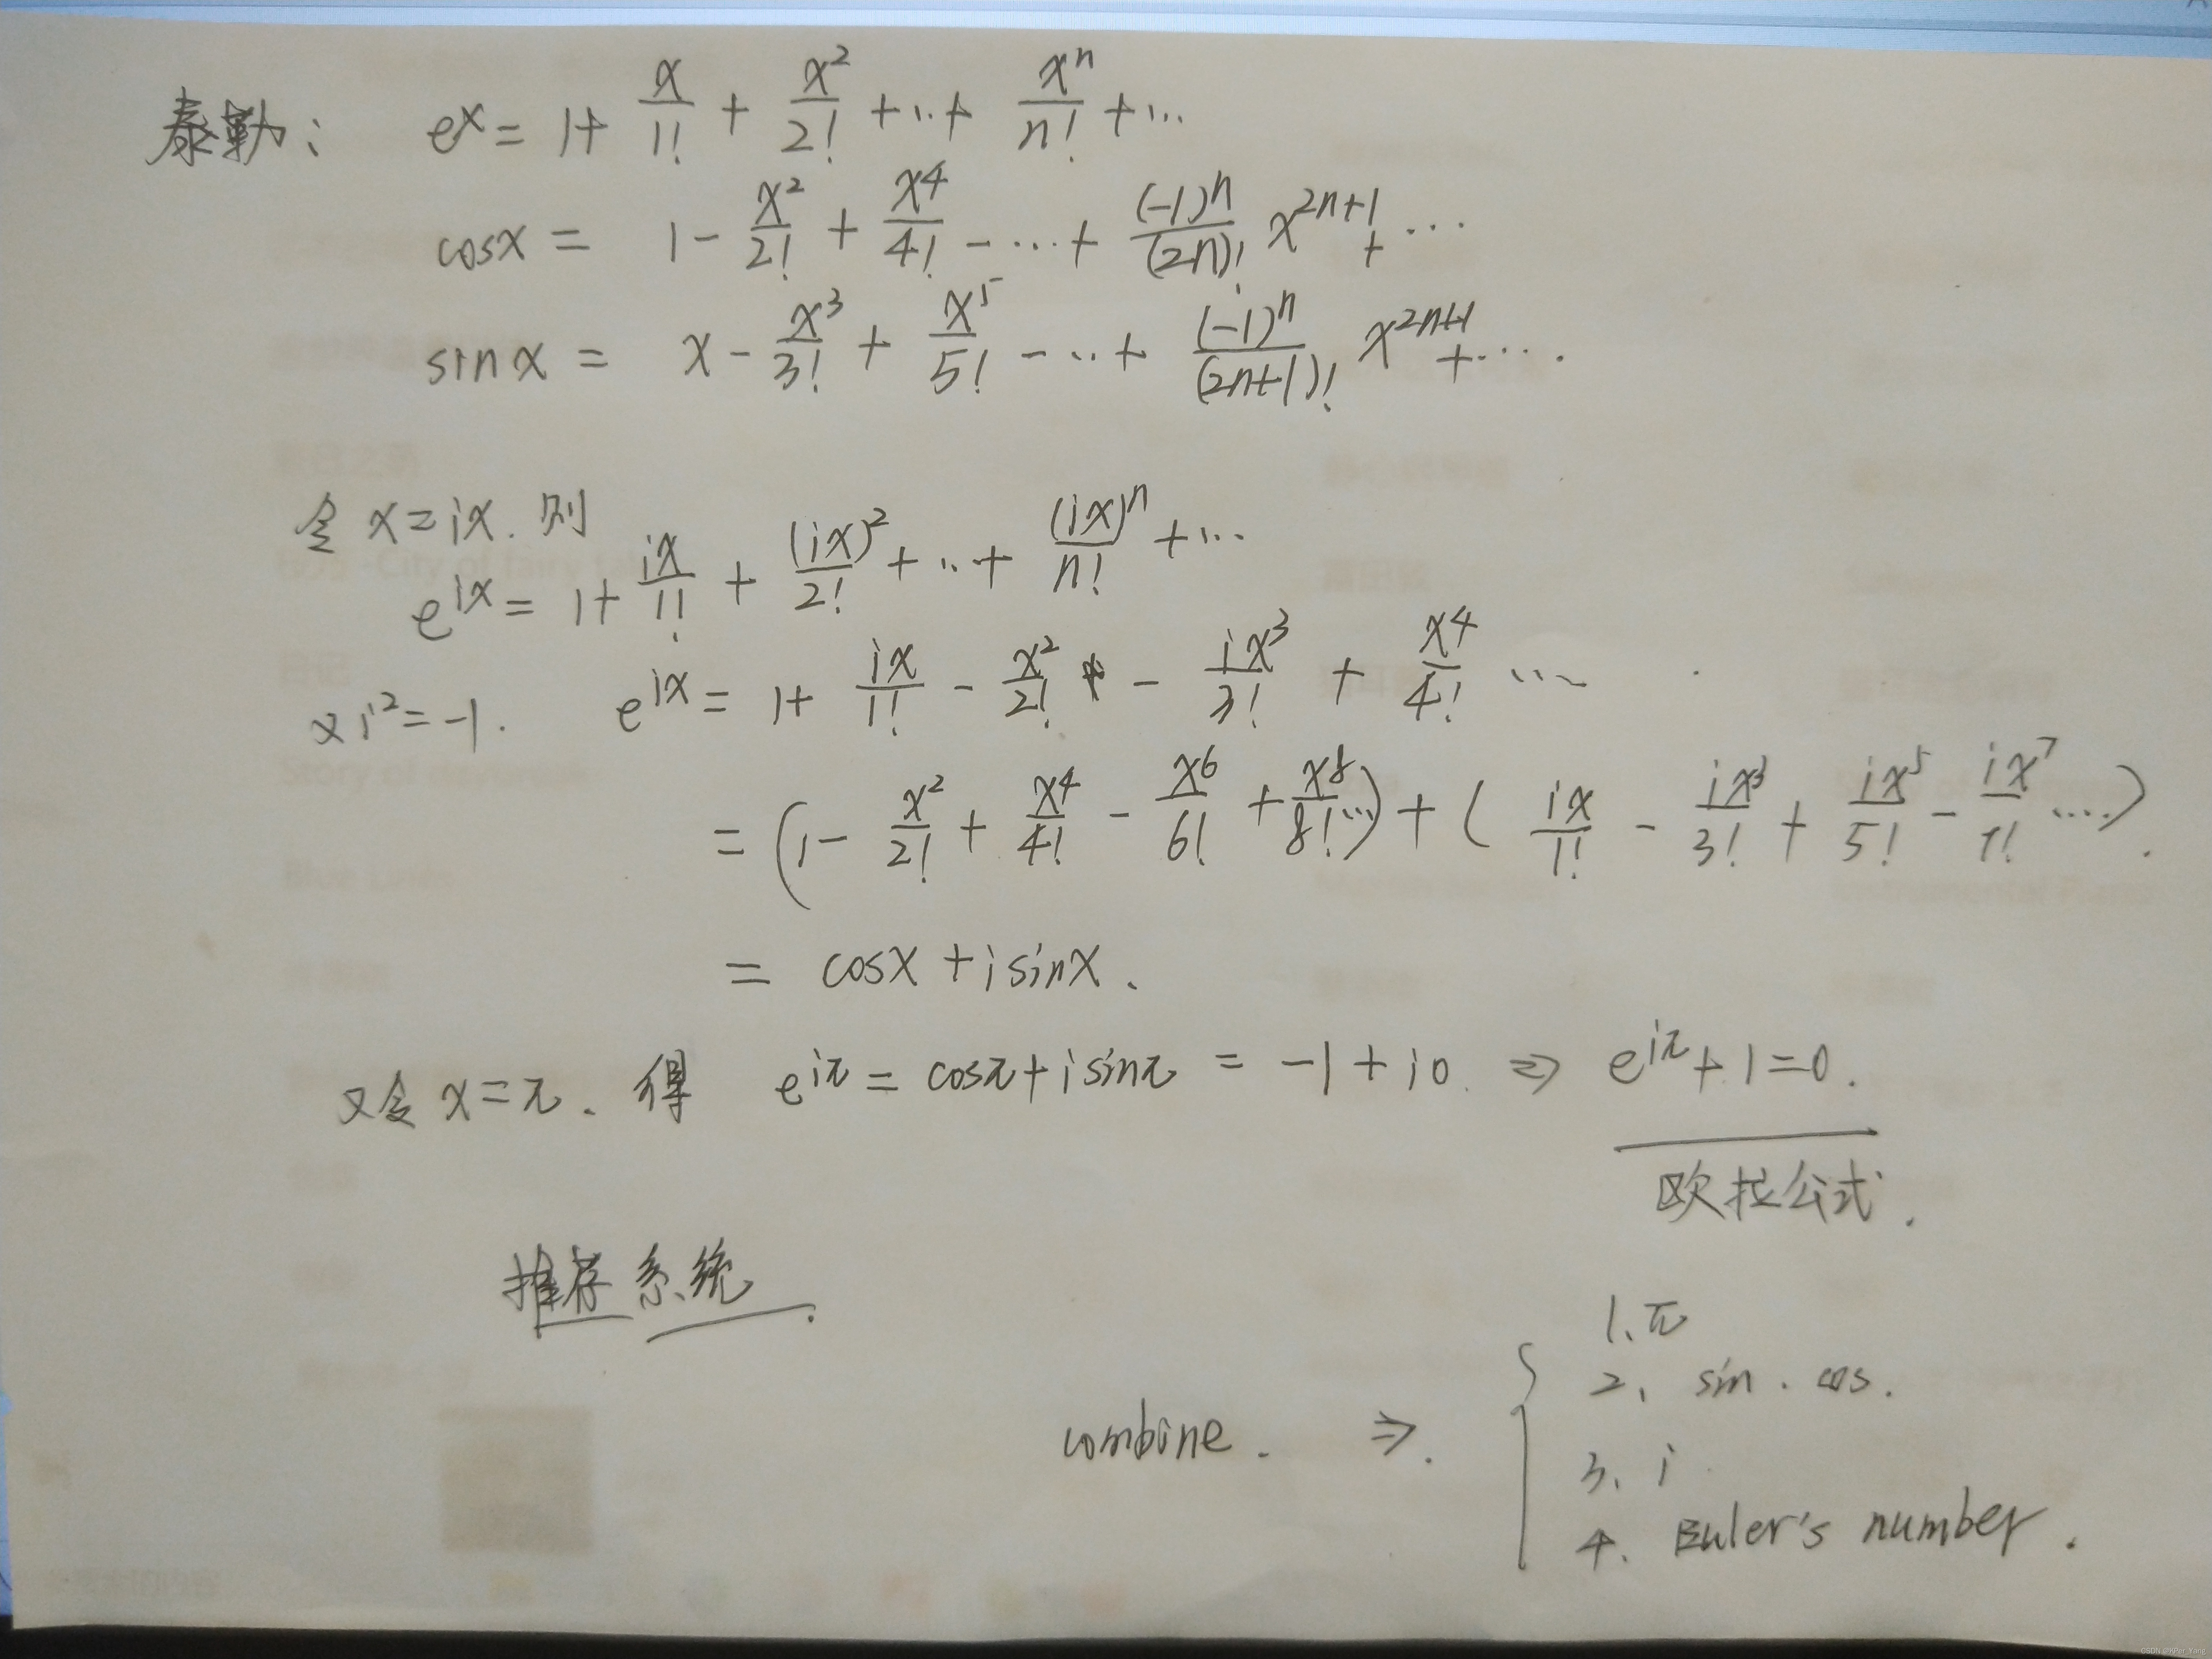 泰勒: e^x = 1 + x/1! + x^2/2! + ... + x^n/n! + ...
cosx = 1 - x^2/2! + x^4/4! - ... + (-1)^n/(2n)! x^{2n+1} + ...
sinx = x - x^3/3! + x^5/5! - ... + (-1)^n/(2n+1)! x^{2n+1} + ....
令 x = ix. 则
e^{ix} = 1 + ix/1! + (ix)^2/2! + ... + (ix)^n/n! + ...
又 i^2 = -1. e^{ix} = 1 + ix/1! - x^2/2! - ix^3/3! + x^4/4! ...
= (1 - x^2/2! + x^4/4! - x^6/6! + x^8/8! ...) + (ix/1! - ix^3/3! + ix^5/5! - ix^7/7! ....).
= cosx + i sinx.
又令 x = π. 得 e^{iπ} = cosπ + i sinπ = -1 + i0. ⇒ e^{iπ} + 1 = 0.
欧拉公式.
推荐系统.
combine. ⇒.
1. π
2. sin. cos.
3. i
4. Euler's number.